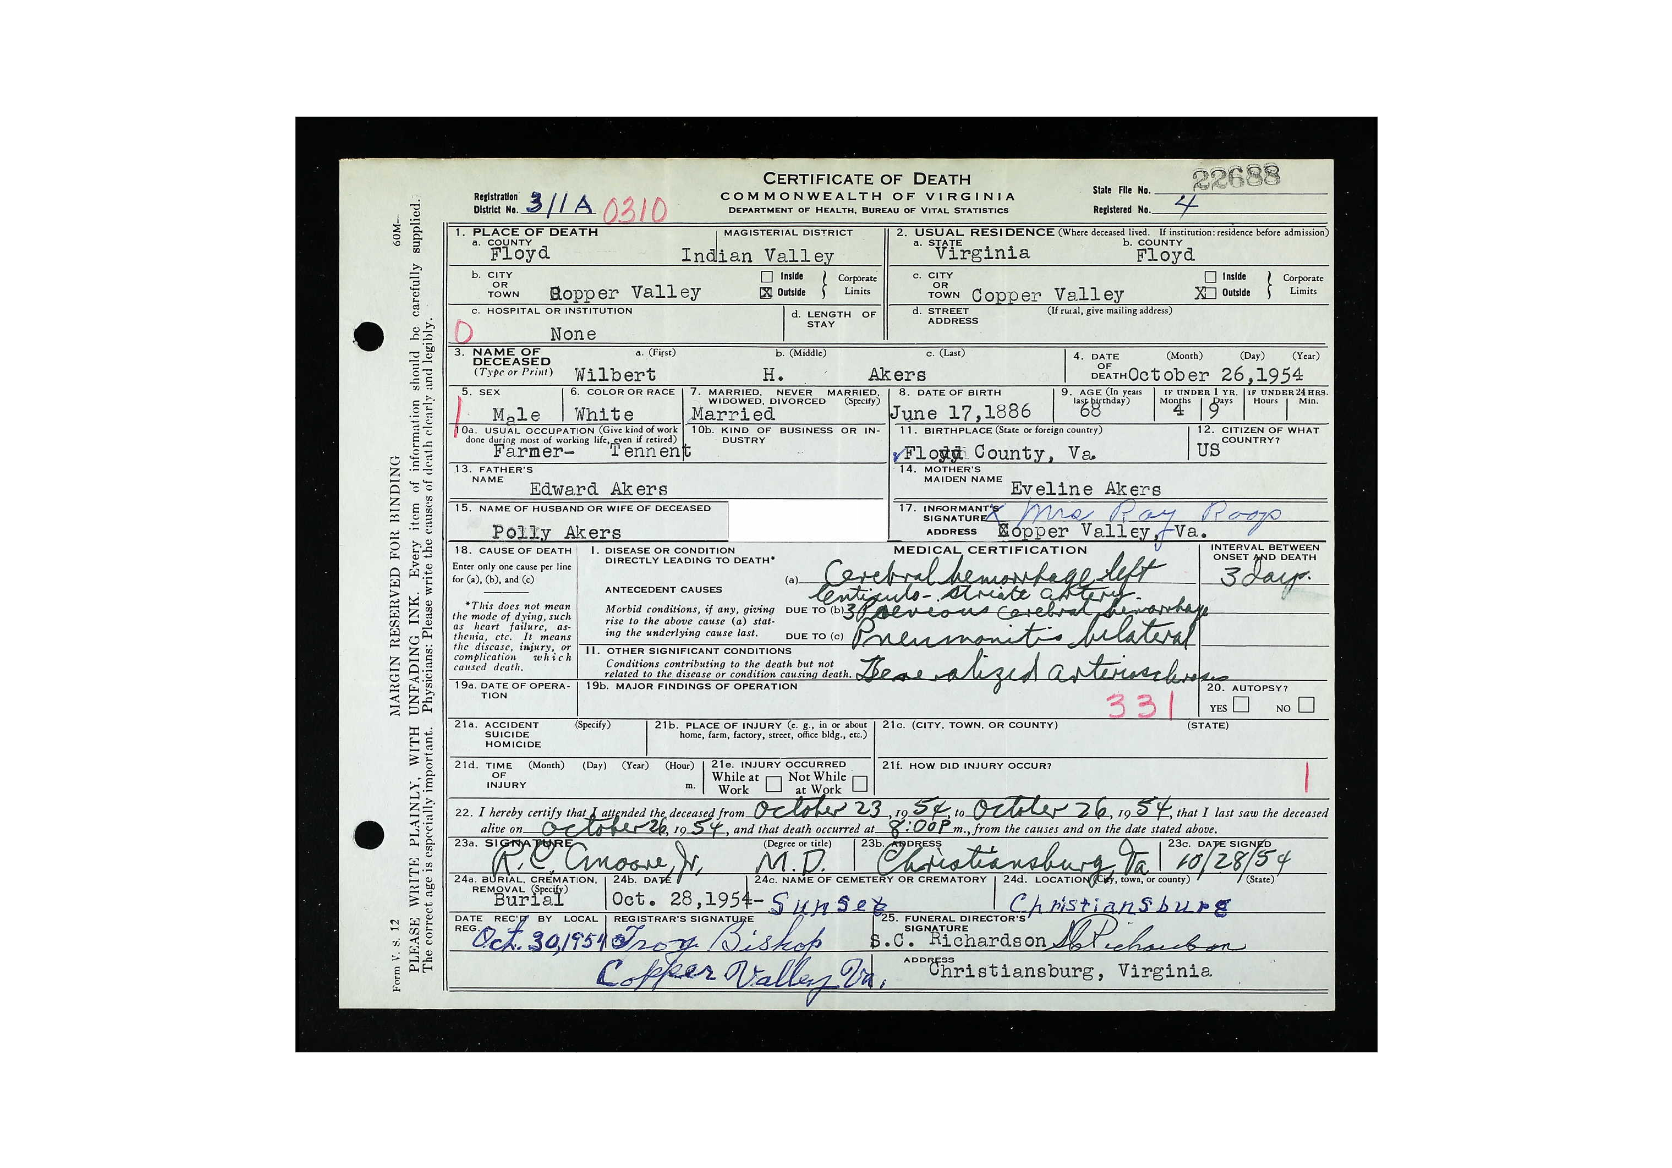 CERTIFICATE OF DEATH
COMMONWEALTH OF VIRGINIA
DEPARTMENT OF HEALTH, BUREAU OF VITAL STATISTICS
Registration District No. 311A 0310
State File No. 22688
Registered No. 4
MARGIN RESERVED FOR BINDING 60M—
PLEASE WRITE PLAINLY, WITH UNFADING INK. Every item of information should be carefully supplied.
The correct age is especially important. Physicians: Please write the causes of death clearly and legibly.
Form V. s. 12
1. PLACE OF DEATH
a. COUNTY Floyd
MAGISTERIAL DISTRICT Indian Valley
2. USUAL RESIDENCE (Where deceased lived. If institution: residence before admission)
a. STATE Virginia
b. COUNTY Floyd
b. CITY OR TOWN Copper Valley
Inside X Outside Corporate Limits
c. CITY OR TOWN Copper Valley
Inside X Outside Corporate Limits
c. HOSPITAL OR INSTITUTION None
0
d. LENGTH OF STAY
d. STREET ADDRESS (If rural, give mailing address)
3. NAME OF DECEASED (Type or Print)
a. (First) Wilbert
b. (Middle) H.
c. (Last) Akers
4. DATE OF DEATH (Month) (Day) (Year) October 26,1954
5. SEX Male
6. COLOR OR RACE White
7. MARRIED, NEVER MARRIED, WIDOWED, DIVORCED (Specify) Married
8. DATE OF BIRTH June 17,1886
9. AGE (In years last birthday) 68
IF UNDER 1 YR. Months 4 Days 9
IF UNDER 24 HRS. Hours Min.
10a. USUAL OCCUPATION (Give kind of work done during most of working life, even if retired) Farmer- Tennent
10b. KIND OF BUSINESS OR INDUSTRY
11. BIRTHPLACE (State or foreign country) Floyd County, Va.
12. CITIZEN OF WHAT COUNTRY? US
13. FATHER'S NAME Edward Akers
14. MOTHER'S MAIDEN NAME Eveline Akers
15. NAME OF HUSBAND OR WIFE OF DECEASED Polly Akers
17. INFORMANT'S SIGNATURE X Mrs Ray Roop
ADDRESS Copper Valley, Va.
18. CAUSE OF DEATH
Enter only one cause per line for (a), (b), and (c)
*This does not mean the mode of dying, such as heart failure, asthenia, etc. It means the disease, injury, or complication which caused death.
MEDICAL CERTIFICATION
INTERVAL BETWEEN ONSET AND DEATH
I. DISEASE OR CONDITION DIRECTLY LEADING TO DEATH*
(a) Cerebral hemorrhage left lenticulo-striate artery. 3 days.
ANTECEDENT CAUSES
Morbid conditions, if any, giving rise to the above cause (a) stating the underlying cause last.
DUE TO (b) 3 Previous cerebral hemorrhage
DUE TO (c) Pneumonitis bilateral
II. OTHER SIGNIFICANT CONDITIONS
Conditions contributing to the death but not related to the disease or condition causing death. Generalized arteriosclerosis
19a. DATE OF OPERATION
19b. MAJOR FINDINGS OF OPERATION
331
20. AUTOPSY?
YES NO
21a. ACCIDENT SUICIDE HOMICIDE (Specify)
21b. PLACE OF INJURY (e. g., in or about home, farm, factory, street, office bldg., etc.)
21c. (CITY, TOWN, OR COUNTY) (STATE)
21d. TIME OF INJURY (Month) (Day) (Year) (Hour) m.
21e. INJURY OCCURRED
While at Work Not While at Work
21f. HOW DID INJURY OCCUR?
1
22. I hereby certify that I attended the deceased from October 23, 1954, to October 26, 1954, that I last saw the deceased
alive on October 26, 1954, and that death occurred at 8:00P m., from the causes and on the date stated above.
23a. SIGNATURE R.C. Cmoore, Jr, (Degree or title) M.D.
23b. ADDRESS Christiansburg, Va
23c. DATE SIGNED 10/28/54
24a. BURIAL, CREMATION, REMOVAL (Specify) Burial
24b. DATE Oct. 28,1954-
24c. NAME OF CEMETERY OR CREMATORY Sunset
24d. LOCATION (City, town, or county) (State) Christiansburg
DATE REC'D BY LOCAL REG. Oct. 30,1954
REGISTRAR'S SIGNATURE Troy Bishop
Copper Valley, Va,
25. FUNERAL DIRECTOR'S SIGNATURE S.C. Richardson SC Richardson
ADDRESS Christiansburg, Virginia